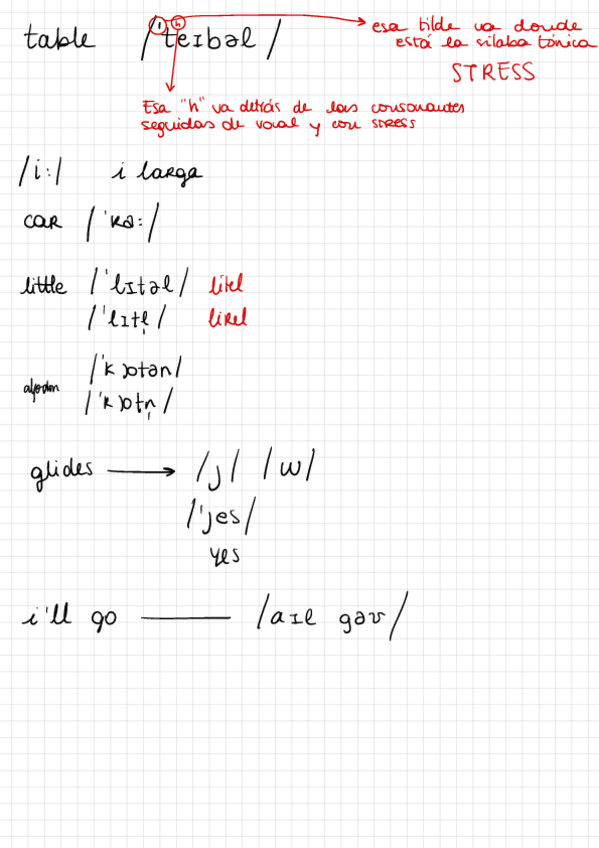 table /ˈtʰeɪbəl/
esa tilde va donde
está la sílaba tónica
STRESS
Esa "h" va detrás de las consonantes
seguidas de vocal y con stress
/i:/ i larga
car /ˈka:/
little /ˈlɪtəl/ litel
/ˈlɪtl̩/ lirel
algodon /ˈkɔtən/
/ˈkɔtn̩/
glides → /j/ /w/
/ˈjes/
yes
i'll go — /aɪl gəʊ/